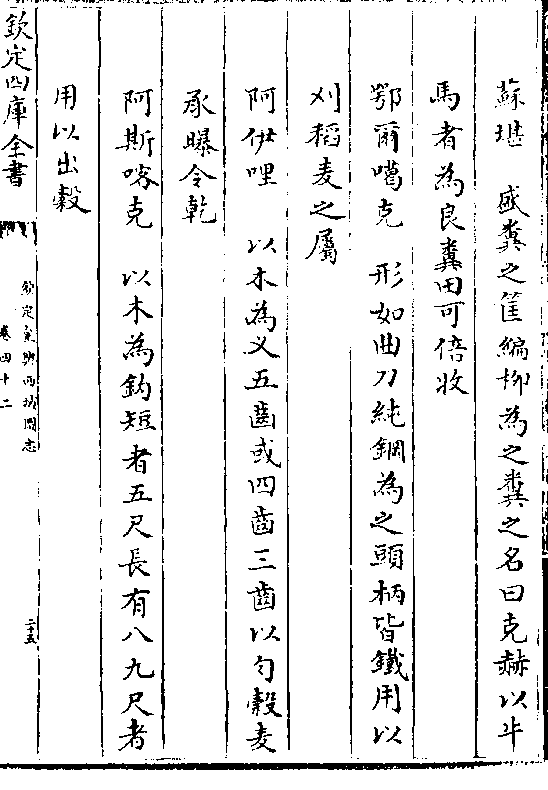 蘇堪　盛糞之筐編柳為之糞之名曰克赫以牛
馬者為良糞田可倍收
鄂爾噶克　形如曲刀純鋼為之頭柄皆鐵用以
刈稻麦之屬
阿伊哩　以木為义五齒或四齒三齒以勻穀麦
承曝令乾
阿斯喀克　以木為鈎短者五尺長有八九尺者
用以出穀
欽定四庫全書
欽定皇輿西域圖志
卷四十二
二十五